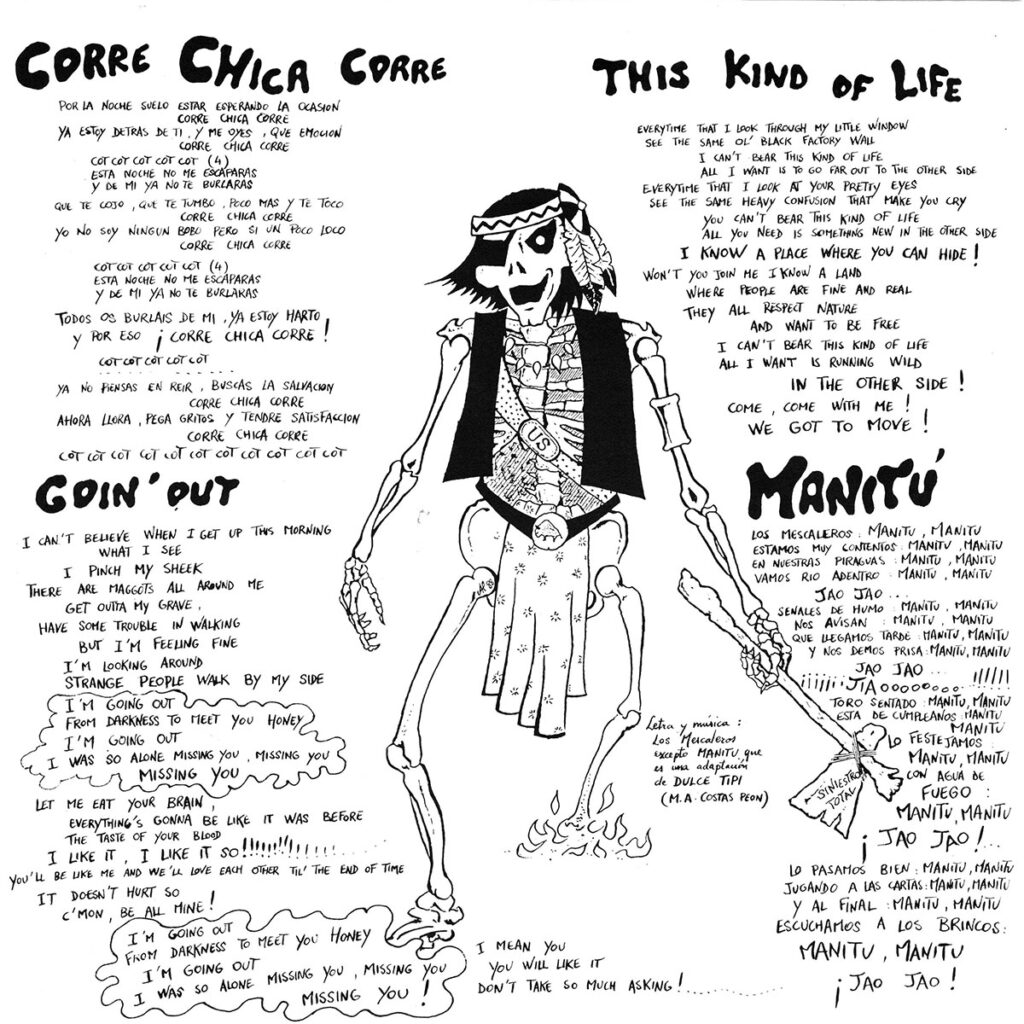 CORRE CHICA CORRE
POR LA NOCHE SUELO ESTAR ESPERANDO LA OCASION
CORRE CHICA CORRE
YA ESTOY DETRAS DE TI, Y ME OYES, QUE EMOCION
CORRE CHICA CORRE
COT COT COT COT COT (4)
ESTA NOCHE NO ME ESCAPARAS
Y DE MI YA NO TE BURLARAS
QUE TE COJO, QUE TE TUMBO, POCO MAS Y TE TOCO
CORRE CHICA CORRE
YO NO SOY NINGUN BOBO PERO SI UN POCO LOCO
CORRE CHICA CORRE
COT COT COT COT COT (4)
ESTA NOCHE NO ME ESCAPARAS
Y DE MI YA NO TE BURLARAS
TODOS OS BURLAIS DE MI, YA ESTOY HARTO
Y POR ESO ¡ CORRE CHICA CORRE !
COT COT COT COT COT
. . . . . . . . . . . . . . . .
YA NO PIENSAS EN REIR, BUSCAS LA SALVACION
CORRE CHICA CORRE
AHORA LLORA, PEGA GRITOS Y TENDRE SATISFACCION
CORRE CHICA CORRE
COT COT COT COT COT COT COT COT COT COT COT
GOIN' OUT
I CAN'T BELIEVE WHEN I GET UP THIS MORNING
WHAT I SEE
I PINCH MY SHEEK
THERE ARE MAGGOTS ALL AROUND ME
GET OUTTA MY GRAVE,
HAVE SOME TROUBLE IN WALKING
BUT I'M FEELING FINE
I'M LOOKING AROUND
STRANGE PEOPLE WALK BY MY SIDE
I'M GOING OUT
FROM DARKNESS TO MEET YOU HONEY
I'M GOING OUT
I WAS SO ALONE MISSING YOU, MISSING YOU
MISSING YOU
LET ME EAT YOUR BRAIN,
EVERYTHING'S GONNA BE LIKE IT WAS BEFORE
THE TASTE OF YOUR BLOOD
I LIKE IT, I LIKE IT SO!!!!!!!!!...
YOU'LL BE LIKE ME AND WE'LL LOVE EACH OTHER TIL' THE END OF TIME
IT DOESN'T HURT SO
C'MON, BE ALL MINE!
I'M GOING OUT
FROM DARKNESS TO MEET YOU HONEY
I'M GOING OUT
I WAS SO ALONE MISSING YOU, MISSING YOU
MISSING YOU!
I MEAN YOU
YOU WILL LIKE IT
DON'T TAKE SO MUCH ASKING!..............
US
AR 88
SINIESTRO
TOTAL
Letra y música:
Los Mescaleros
excepto MANITU, que
es una adaptación
de DULCE TIPI
(M.A. COSTAS PEON)
THIS KIND OF LIFE
EVERYTIME THAT I LOOK THROUGH MY LITTLE WINDOW
SEE THE SAME OL' BLACK FACTORY WALL
I CAN'T BEAR THIS KIND OF LIFE
ALL I WANT IS TO GO FAR OUT TO THE OTHER SIDE
EVERYTIME THAT I LOOK AT YOUR PRETTY EYES
SEE THE SAME HEAVY CONFUSION THAT MAKE YOU CRY
YOU CAN'T BEAR THIS KIND OF LIFE
ALL YOU NEED IS SOMETHING NEW IN THE OTHER SIDE
I KNOW A PLACE WHERE YOU CAN HIDE!
WON'T YOU JOIN ME I KNOW A LAND
WHERE PEOPLE ARE FINE AND REAL
THEY ALL RESPECT NATURE
AND WANT TO BE FREE
I CAN'T BEAR THIS KIND OF LIFE
ALL I WANT IS RUNNING WILD
IN THE OTHER SIDE!
COME, COME WITH ME!
WE GOT TO MOVE!
MANITÚ
LOS MESCALEROS: MANITU, MANITU
ESTAMOS MUY CONTENTOS: MANITU, MANITU
EN NUESTRAS PIRAGUAS: MANITU, MANITU
VAMOS RIO ADENTRO: MANITU, MANITU
JAO JAO...
SEÑALES DE HUMO: MANITU, MANITU
NOS AVISAN: MANITU, MANITU
QUE LLEGAMOS TARDE: MANITU, MANITU
Y NOS DEMOS PRISA: MANITU, MANITU
JAO JAO...
¡¡¡¡¡¡JIAOOOOOOOO...!!!!!!
TORO SENTADO: MANITU, MANITU
ESTA DE CUMPLEAÑOS: MANITU
MANITU
LO FESTEJAMOS:
MANITU, MANITU
CON AGUA DE
FUEGO:
MANITU, MANITU
¡JAO JAO!...
LO PASAMOS BIEN: MANITU, MANITU
JUGANDO A LAS CARTAS: MANITU, MANITU
Y AL FINAL: MANITU, MANITU
ESCUCHAMOS A LOS BRINCOS:
MANITU, MANITU
¡JAO JAO!